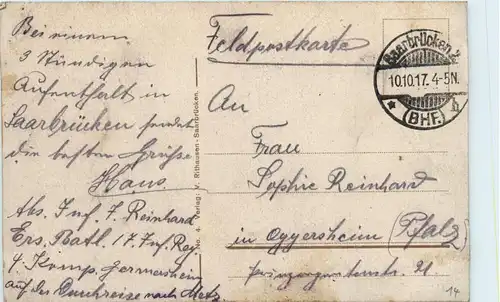 Bei einem
3 stündigen
Aufenthalt in
Saarbrücken sendet
die besten Grüße
Hans
Abs. Inf. F. Reinhard
Ers. Batl. 17. Inf. Reg.
4. Komp. Germersheim
auf der Durchreise nach Metz
No. 4. Verlag: V. Rithausen-Saarbrücken.
Feldpostkarte
Saarbrücken 2
10.10.17. 4-5N.
* (BHF.) h
An
Frau
Sophie Reinhard
in Oggersheim (Pfalz)
21
14